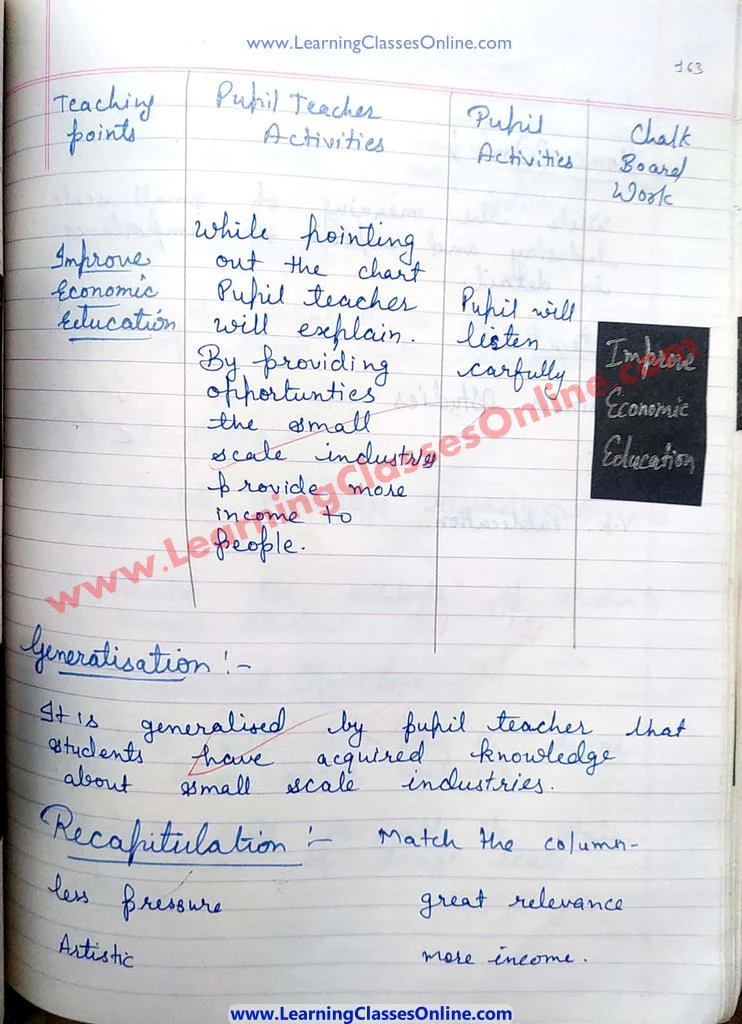 www.LearningClassesOnline.com
163
Teaching points
Pupil Teacher Activities
Pupil Activities
Chalk Board Work
Improve
Economic
Education
While pointing
out the chart
Pupil teacher
will explain.
By providing
opportunties
the small
scale industry
provide more
income to
people.
Pupil will
listen
carfully
Improve
Economic
Education
www.LearningClassesOnline.com
Generatisation :-
It is generalised by pupil teacher that
students have acquired knowledge
about small scale industries.
Recapitulation :- Match the column-
less pressure great relevance
Artistic more income.
www.LearningClassesOnline.com